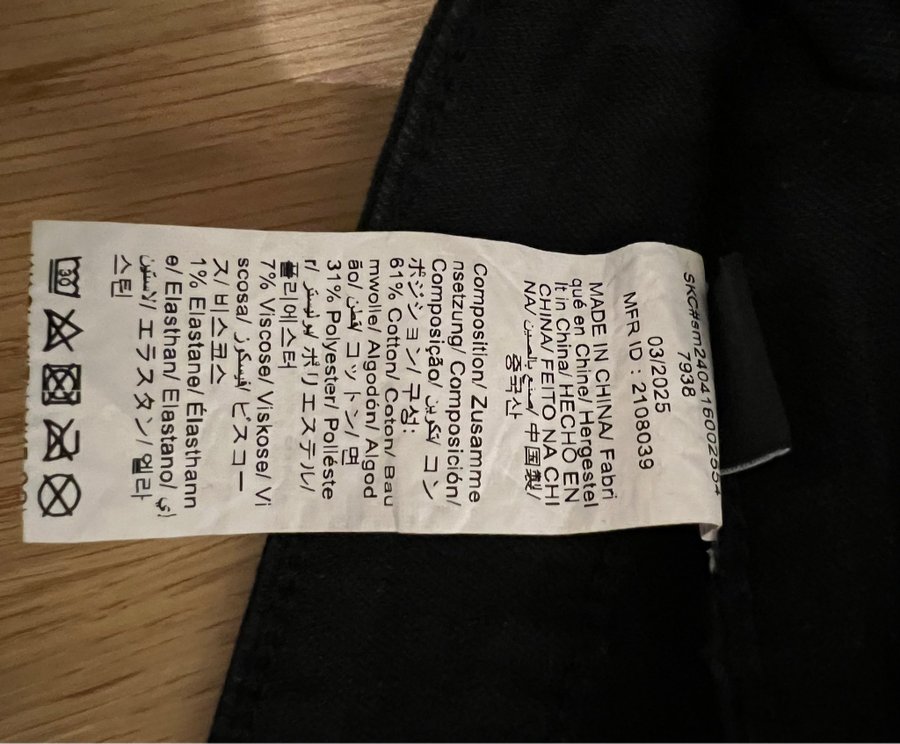 7938
03/2025
MFR ID : 2108039
MADE IN CHINA/ Fabri
qué en Chine/ Hergestel
lt in China/ HECHO EN
CHINA/ FEITO NA CHI
NA/ صنع بالصين/ 中国製/
중국산
Composition/ Zusamme
nsetzung/ Composición/
Composição/ تكوين/ コン
ポジション/ 구성:
61% Cotton/ Coton/ Bau
mwolle/ Algodón/ Algod
ão/ قطن/ コットン/ 면
31% Polyester/ Polléste
r/ بوليستر/ ポリエステル/
폴리에스터
7% Viscose/ Viskose/ Vi
scosa/ فيسكوز/ ビスコー
ス/ 비스코스
1% Elastane/ Élasthann
e/ Elasthan/ Elastano/ إي
لاستين/ エラスタン/ 엘라
스틴
30